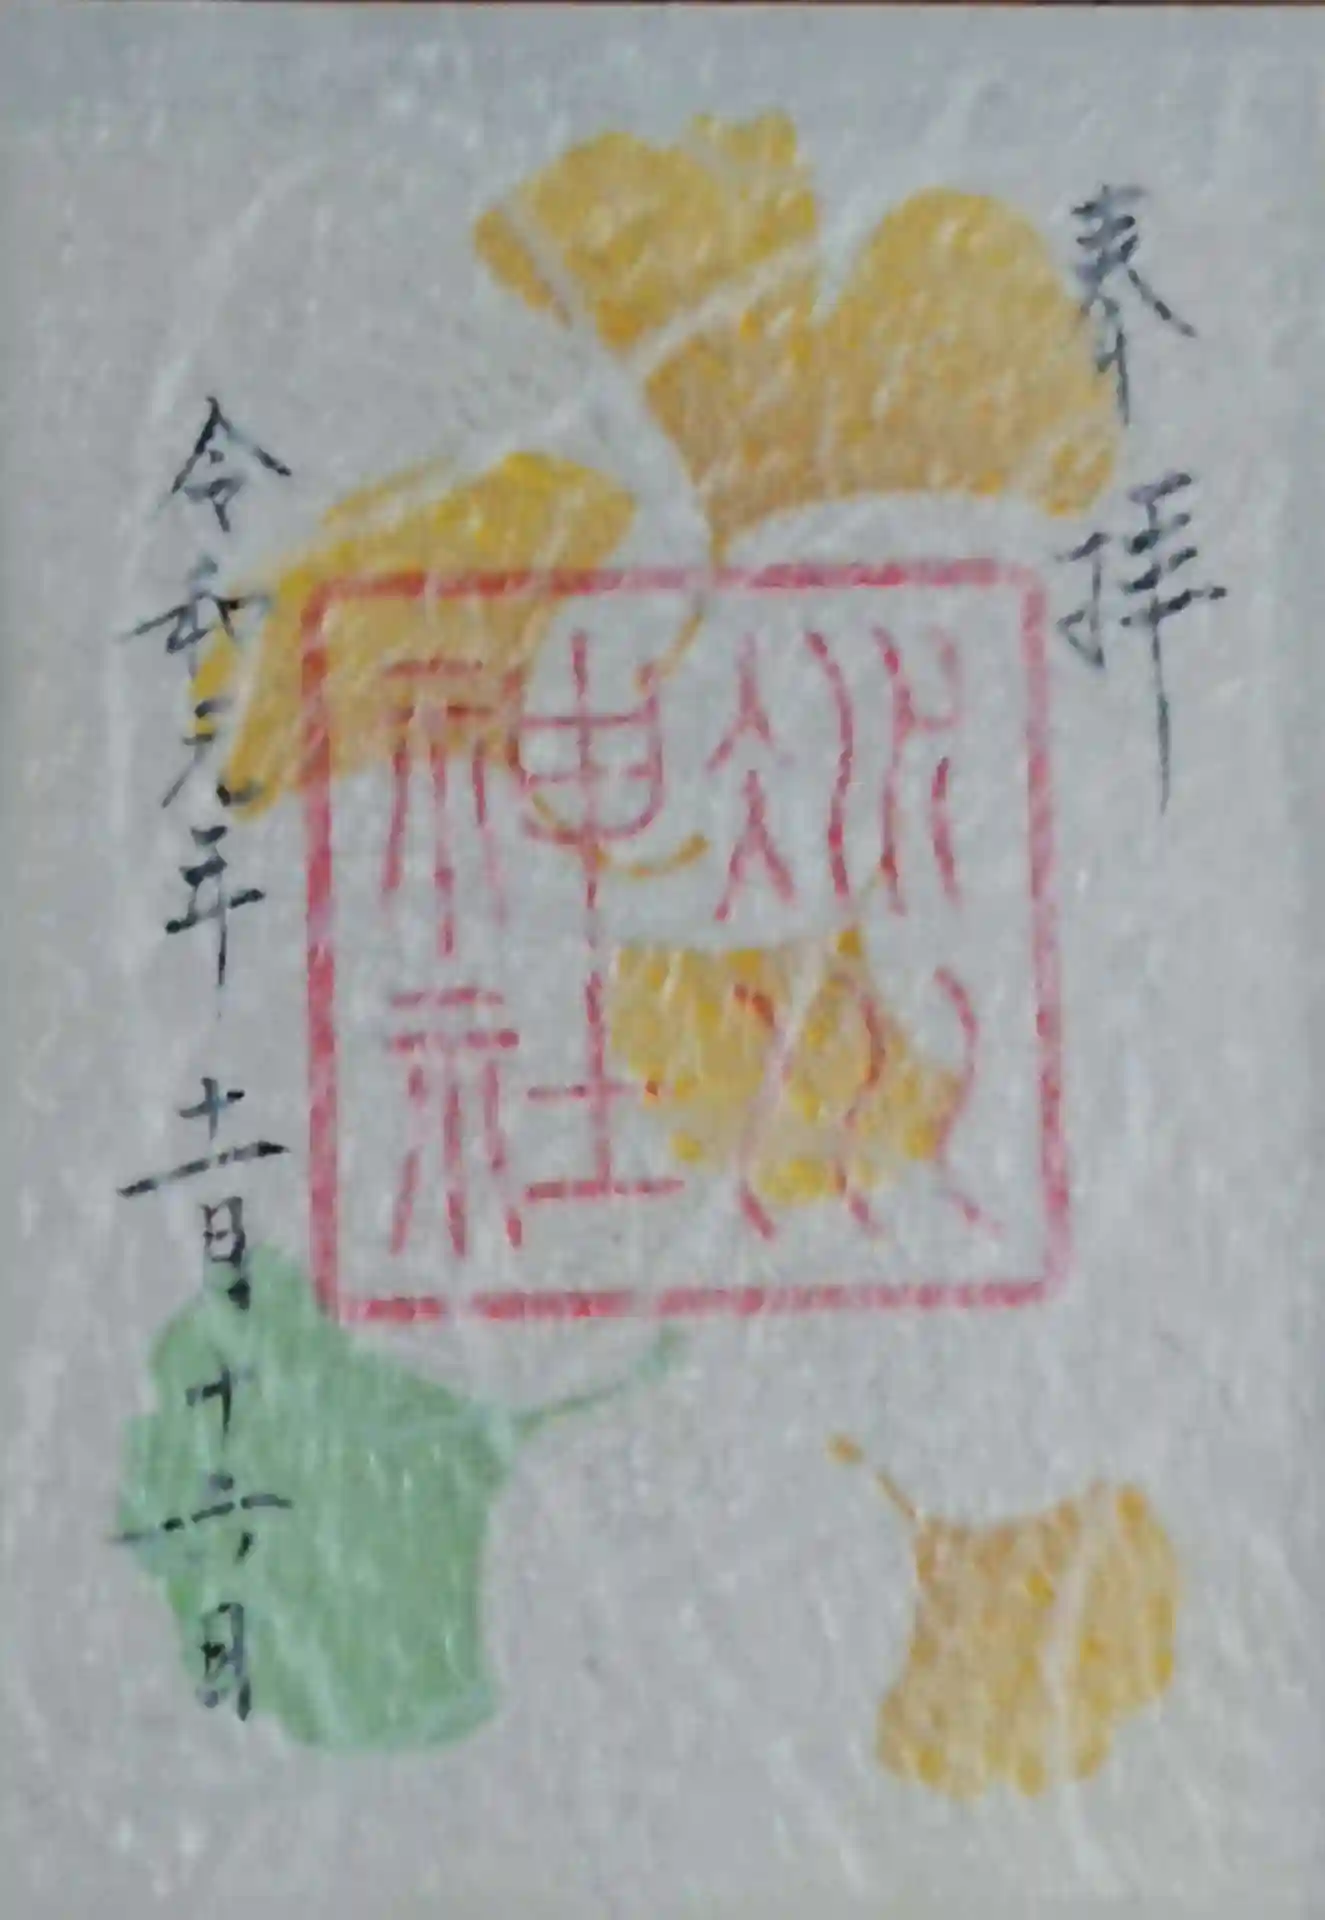 奉拝
冰川
神社
令和元年十一月十六日